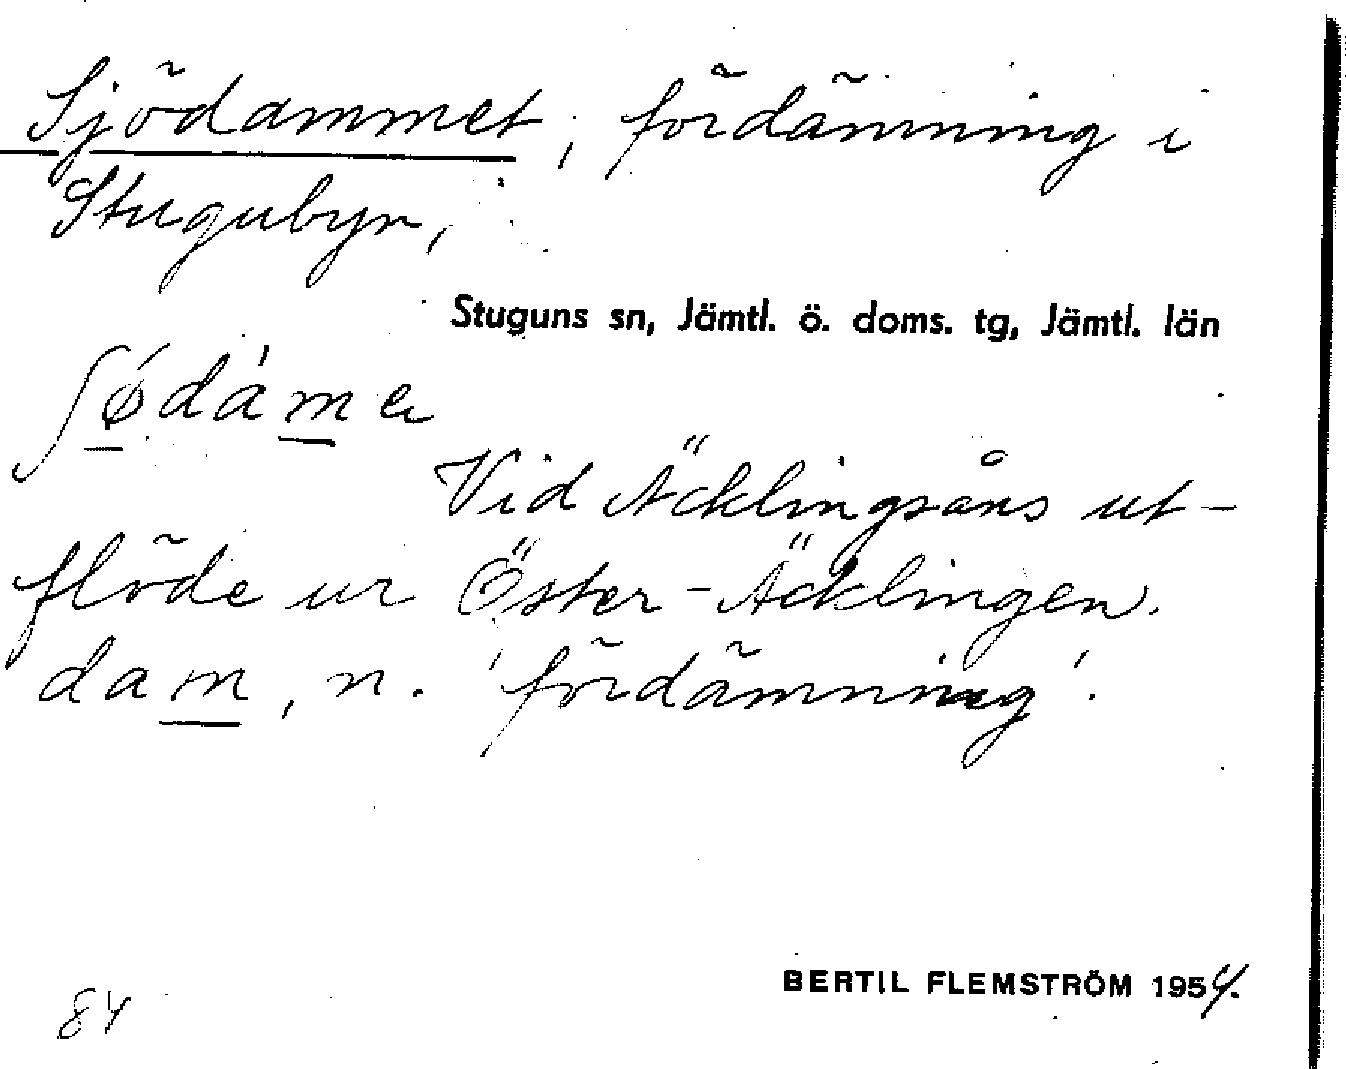 Sjödammet, fördämning i
Stugubyn,
Stuguns sn, Jämtl. ö. doms. tg, Jämtl. län
ʃø̀dàme
Vid Äcklingsåns ut-
flöde ur Öster-Äcklingen.
dam, n. 'fördämning'.
BERTIL FLEMSTRÖM 1954.
84